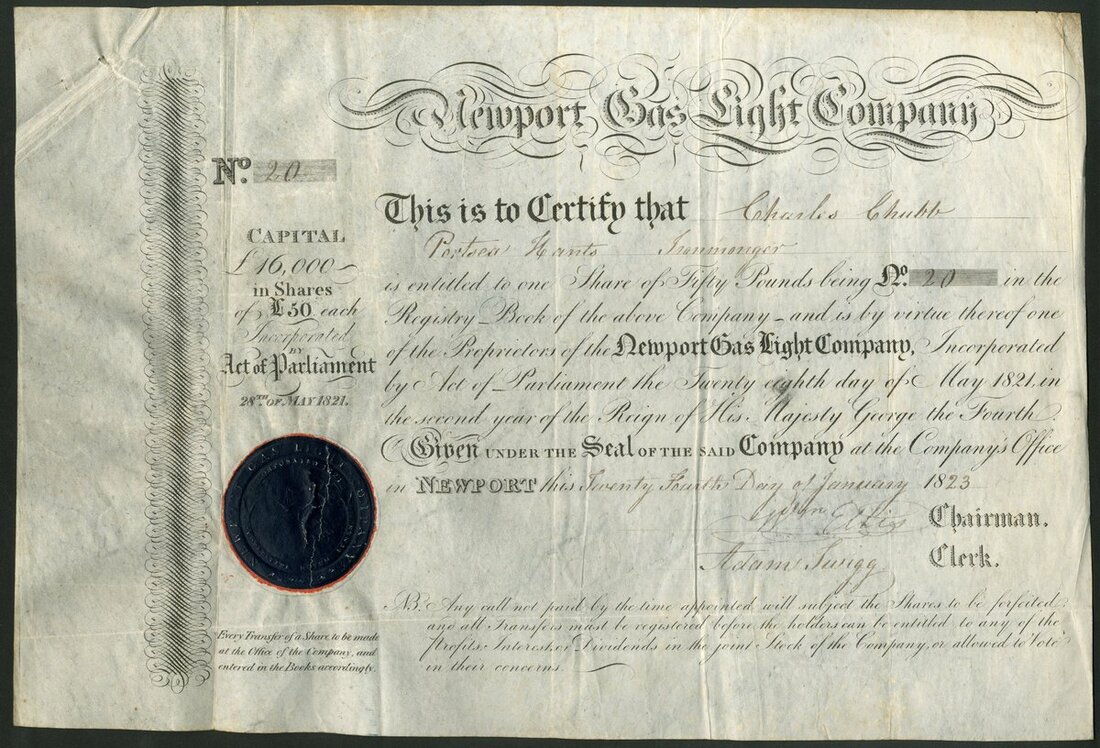 Newport Gas Light Company
No. 20
This is to Certify that Charles Chubb
Portsea Hants Ironmonger
is entitled to one Share of Fifty Pounds being No. 20 in the
Registry Book of the above Company and is by virtue thereof one
of the Proprietors of the Newport Gas Light Company, Incorporated
by Act of Parliament the Twenty eighth day of May 1821, in
the second year of the Reign of His Majesty George the Fourth
Given UNDER THE Seal OF THE SAID Company at the Company's Office
in NEWPORT this Twenty Fourth Day of January 1823
Wm
Chairman.
Adam Twigg
Clerk.
NB. Any call not paid by the time appointed will subject the Shares to be forfeited:
and all Transfers must be registered before the holders can be entitled to any of the
Profits Interest or Dividends in the joint Stock of the Company, or allowed to Vote
in their concerns.
CAPITAL
£16,000
in Shares
of £50 each
Incorporated
BY
Act of Parliament
28TH OF MAY 1821.
Every Transfer of a Share to be made
at the Office of the Company, and
entered in the Books accordingly.